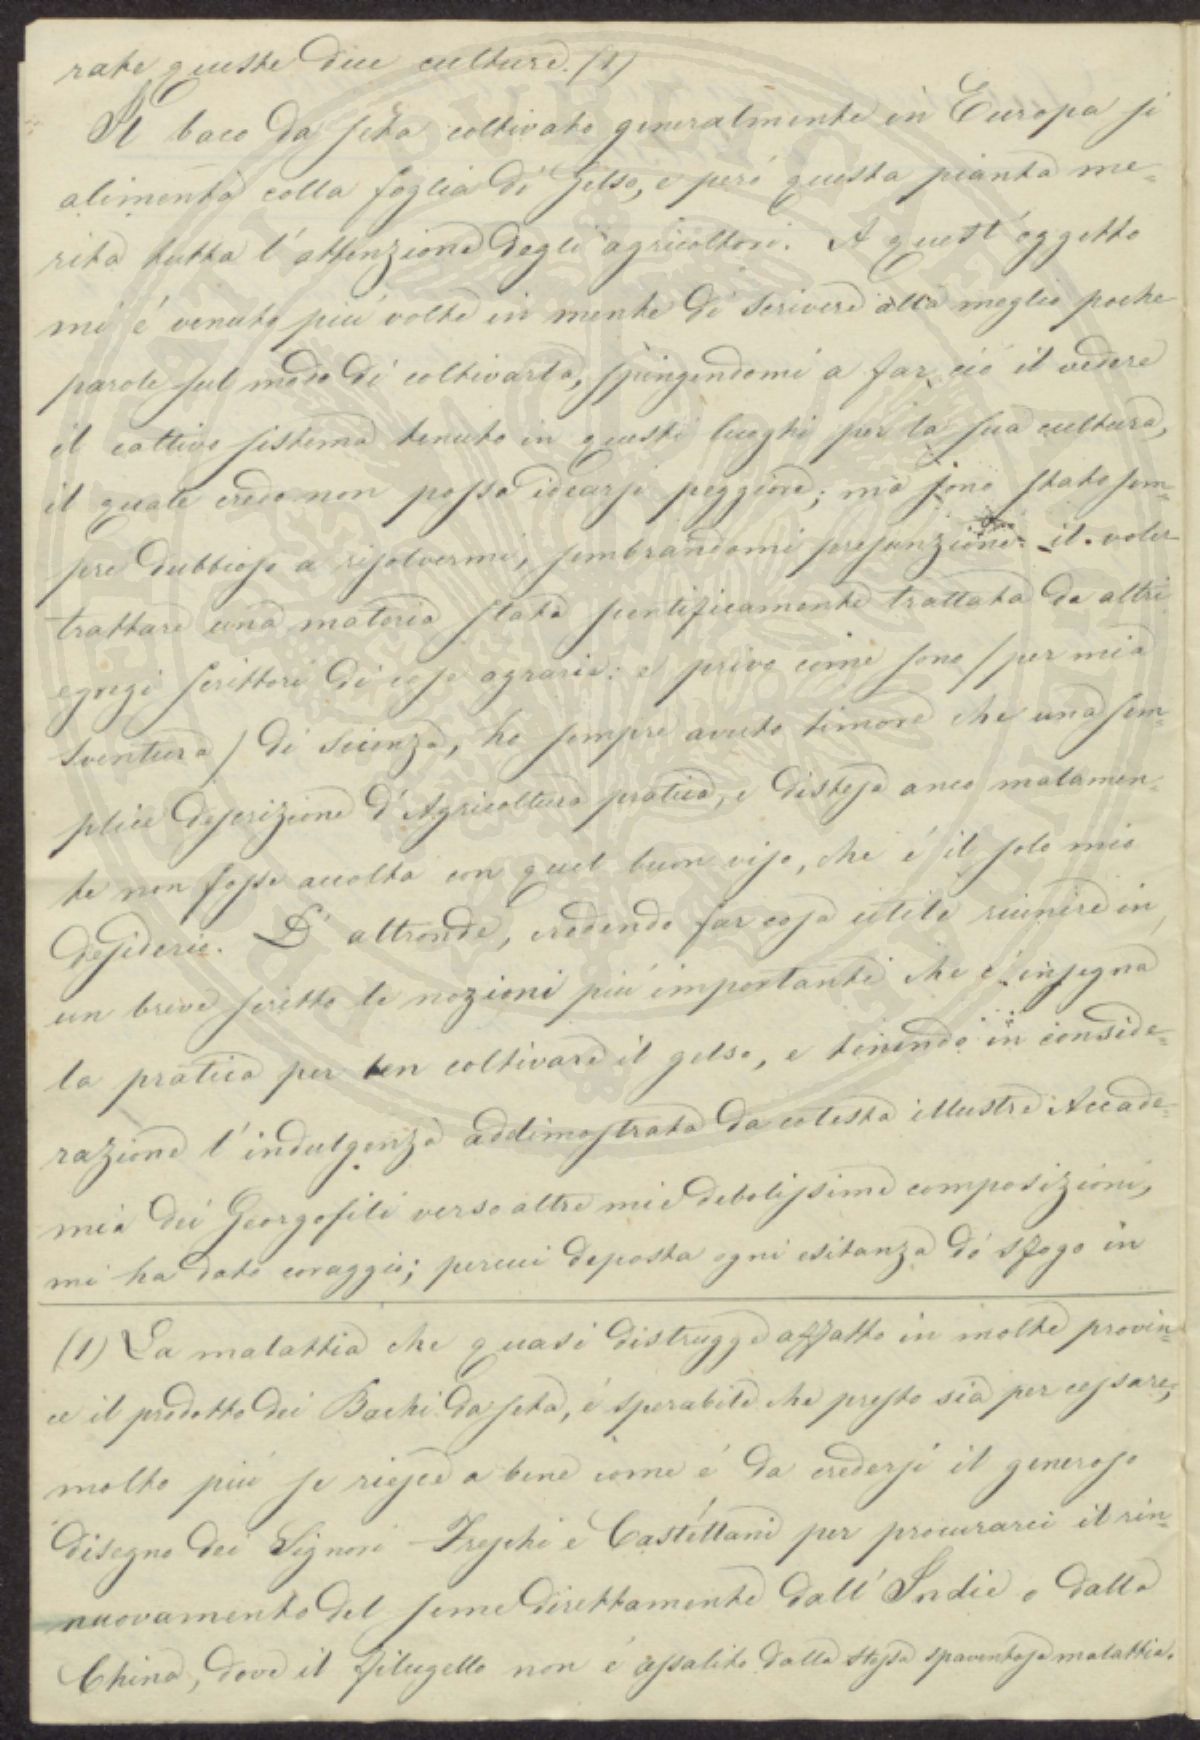 rate queste due culture. (1)
Il baco da seta coltivato generalmente in Europa si
alimenta colla foglia di Gelso, e però questa pianta me=
rita tutta l'attenzione degli agricoltori. A quest'oggetto
mi è venuto più volte in mente di scrivere alla meglio poche
parole sul modo di coltivarla, spingendomi a far ciò il vedere
il cattivo sistema tenuto in questi luoghi per la sua cultura,
il quale credo non possa idearsi peggiore; ma sono stato sem=
pre dubbioso a risolvermi, sembrandomi presunzione il voler
trattare una materia stata scentificamente trattata da altri
egregi scrittori di cose agrarie: e privo come sono (per mia
sventura) di scienza, ho sempre avuto timore che una sem=
plice descrizione d'Agricoltura pratica, e distesa anco malamen=
te non fosse accolta con quel buon viso, che è il solo mio
desiderio. D'altronde, credendo far cosa utile riunire in
un breve scritto le nozioni più importanti che c'insegna
la pratica per ben coltivare il gelso, e tenendo in conside=
razione l'indulgenza addimostrata da cotesta illustre Accade=
mia dei Georgofili verso altre mie debolissime composizioni,
mi ha dato coraggio; percui deposta ogni esitanza dò sfogo in
(1) La malattia che quasi distrugge affatto in molte provin=
ce il prodotto dei Bachi da seta, è sperabile che presto sia per cessare,
molto più se riesce a bene come è da credersi il generoso
disegno dei Signori Freschi e Castellani per procurarci il rin=
nuovamento del seme direttamente dall'Indie o dalla
China, dove il filugello non è assalito dalla stessa spaventosa malattia.